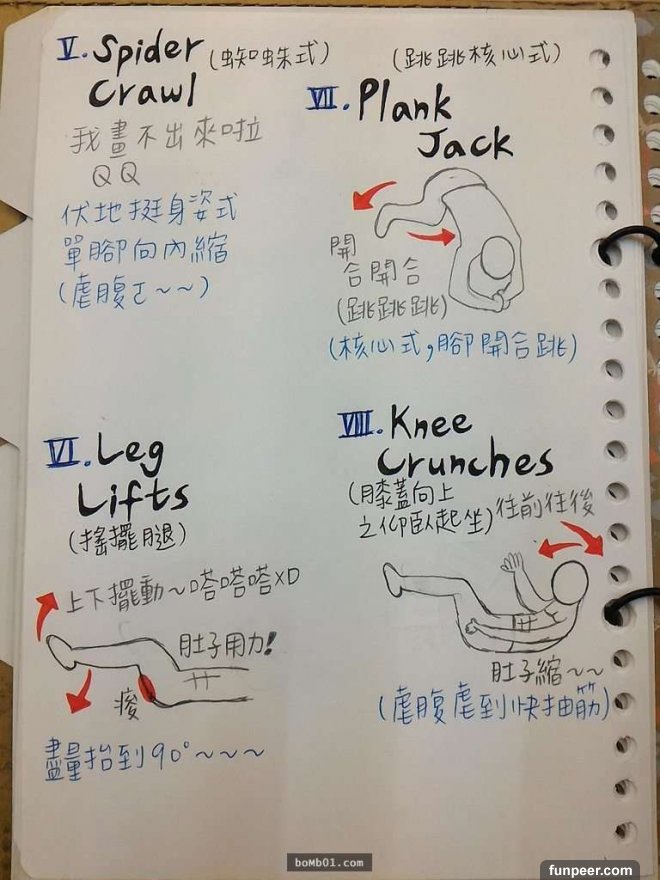 V. Spider (蜘蛛式)
Crawl
我畫不出來啦
QQ
伏地挺身姿式
單腳向內縮
(虐腹ㄛ~~)
VI. Leg
Lifts
(搖擺腿)
上下擺動~嗒嗒嗒XD
肚子用力!
痠
盡量抬到90°~~~~
(跳跳核心式)
VII. Plank
Jack
開
合開合
(跳跳跳)
(核心式,腳開合跳)
VIII. Knee
Crunches
(膝蓋向上
之仰臥起坐)
往前往後
肚子縮~~
(虐腹虐到快抽筋)
boMb01.com
funpeer.com